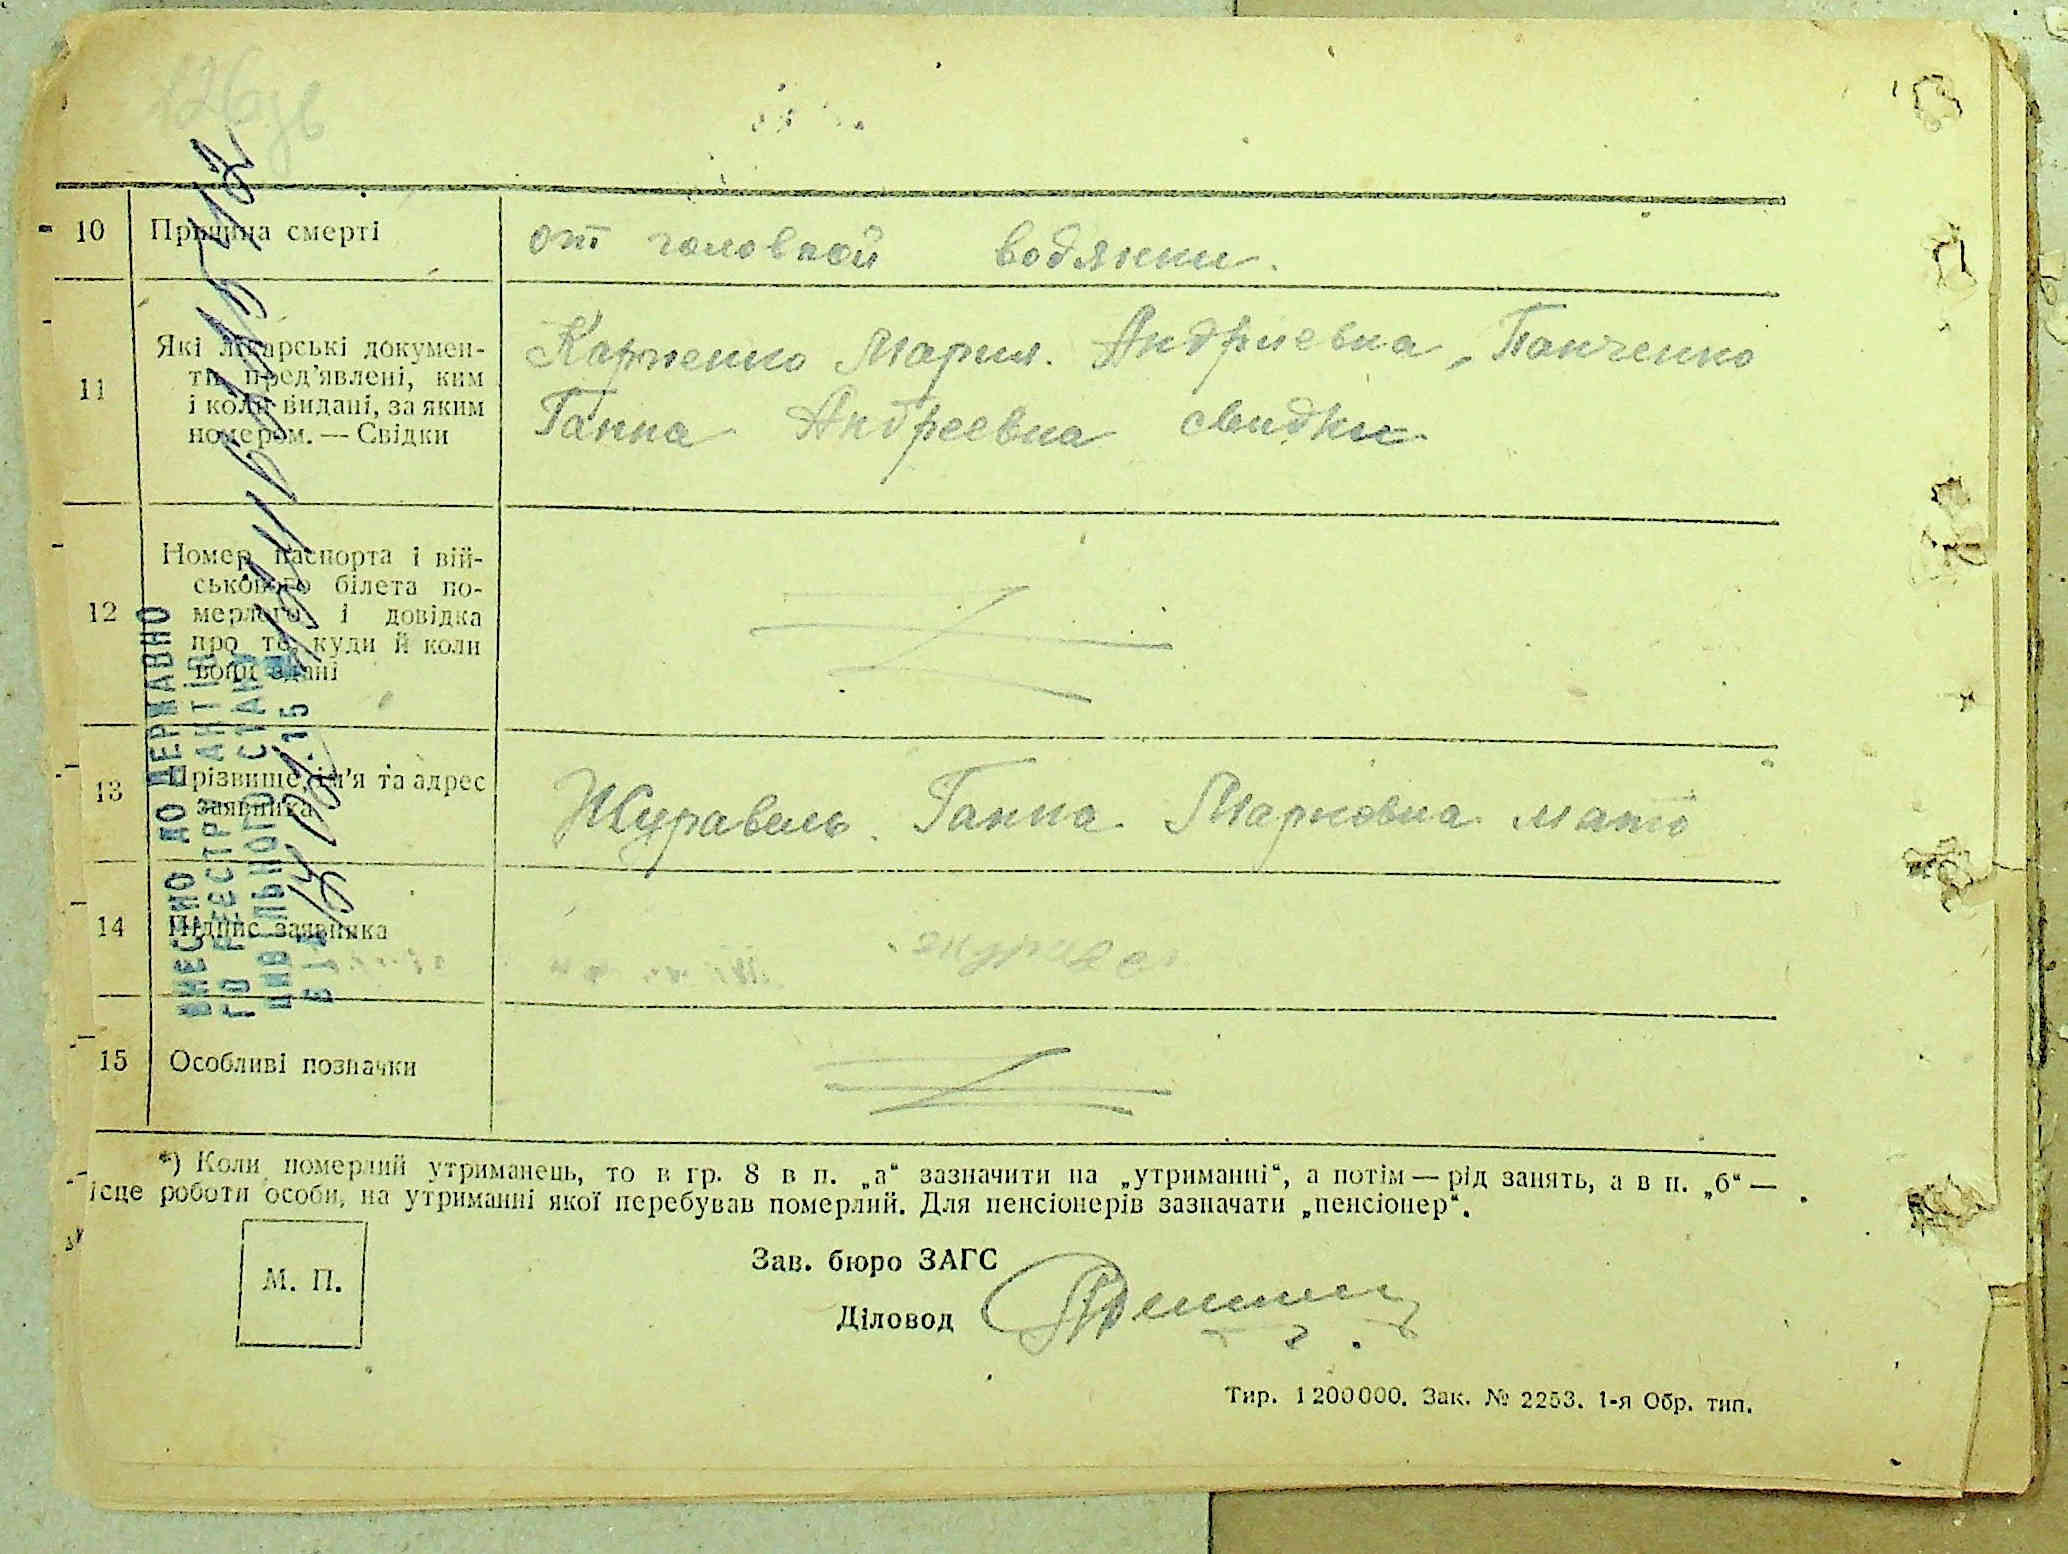 126зв
10 Причина смерті от головной водянки.
11 Які лікарські докумен-
ти пред'явлені, ким
і коли видані, за яким
номером. — Свідки
Карпенко Мария. Андриевна, Панченко
Ганна Андреевна свидки
12 Номер паспорта і вій-
ськового білета по-
мерлого і довідка
про те, куди й коли
вони здані
13 Прізвище, ім'я та адрес
заявника
Журавель. Ганна Марковна мать
14 Підпис заявника
15 Особливі позначки
*) Коли померлий утриманець, то в гр. 8 в п. „а“ зазначити на „утриманні“, а потім — рід занять, а в п. „б“ —
ісце роботи особи, на утриманні якої перебував померлий. Для пенсіонерів зазначати „пенсіонер“.
М. П.
Зав. бюро ЗАГС
Діловод
Тир. 1 200 000. Зак. № 2253. 1-я Обр. тип.
ВНЕСЕНО ДО ДЕРЖАВНО
ГО РЕЄСТР АНТІВ
ЦИВІЛЬНОГО СТАНУ